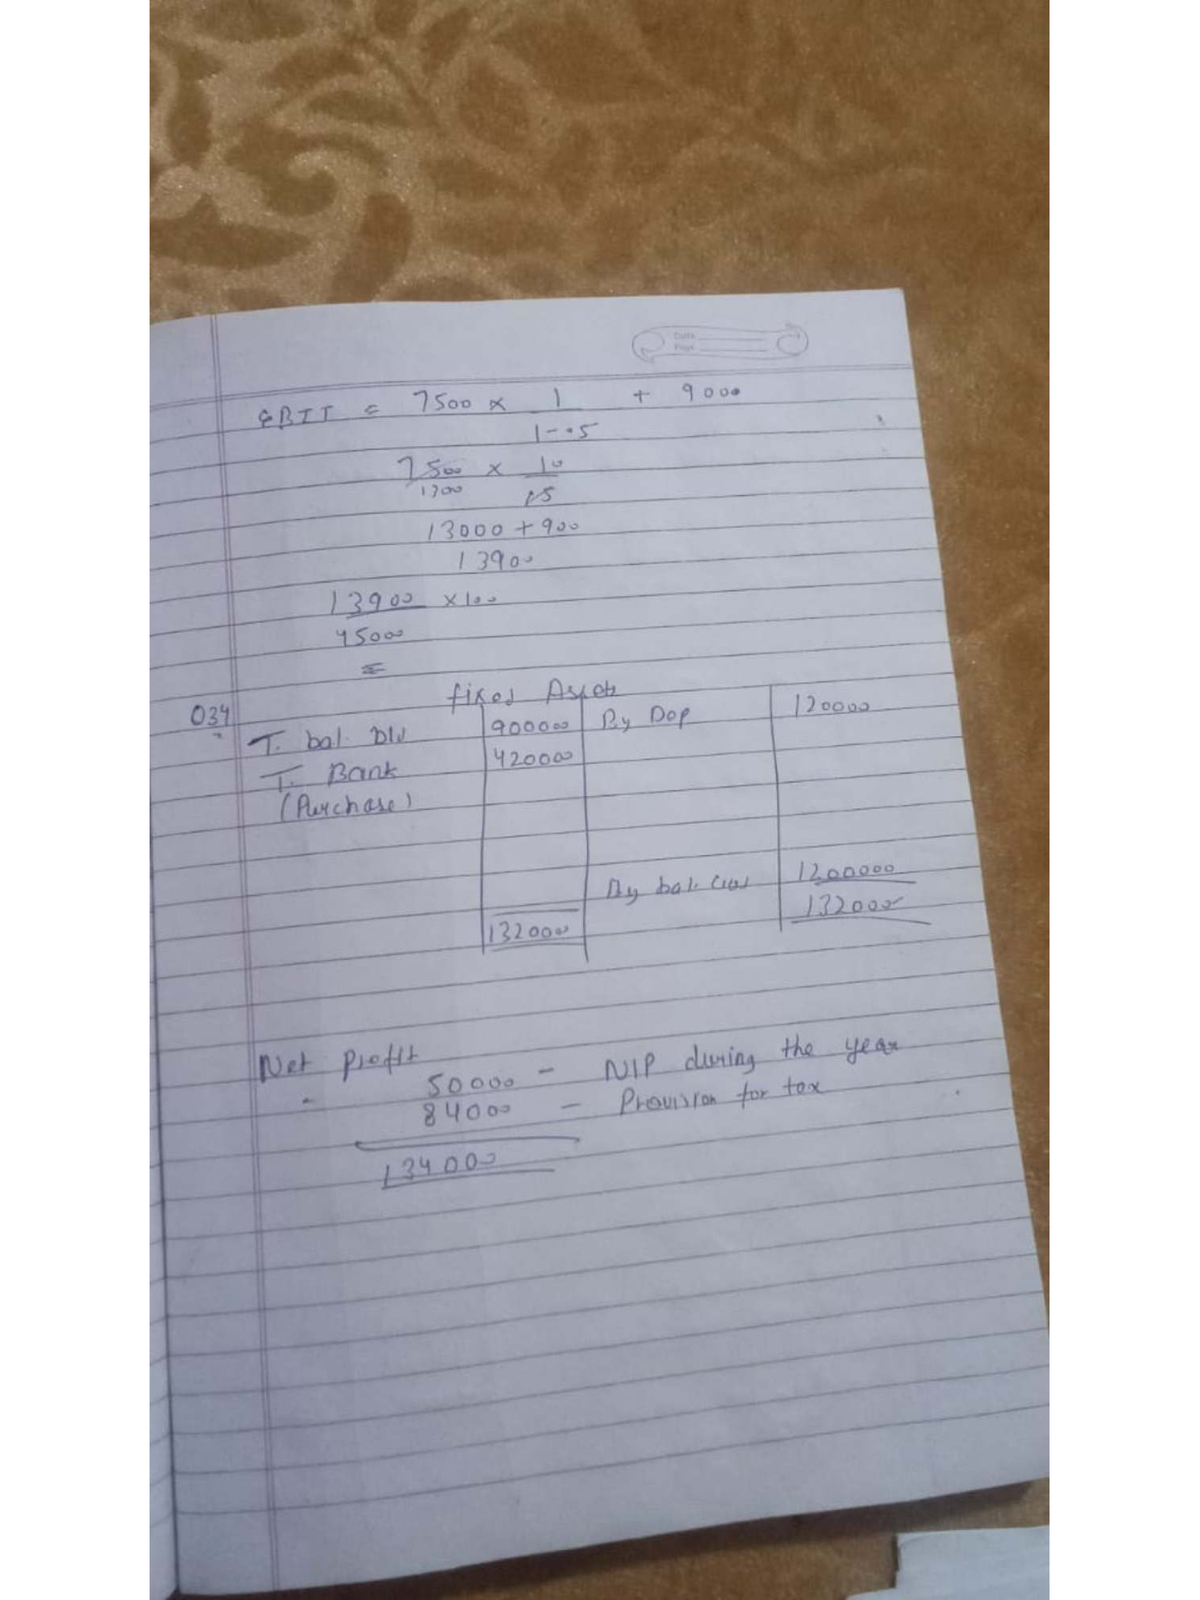 Date
Page
EBIT = 7500 × 1 + 9000
1-.5
7500 × 10
1300 .5
13000 + 900
13900
13900 × 100
45000
=
Fixed Assets
Q34 To bal. b/d 900000 By Dep 120000
To Bank 420000
(Purchase)
By bal. c/d 1200000
132000 132000
Net Profit
50000 - N/P during the year
84000 - Provision for tax
134000